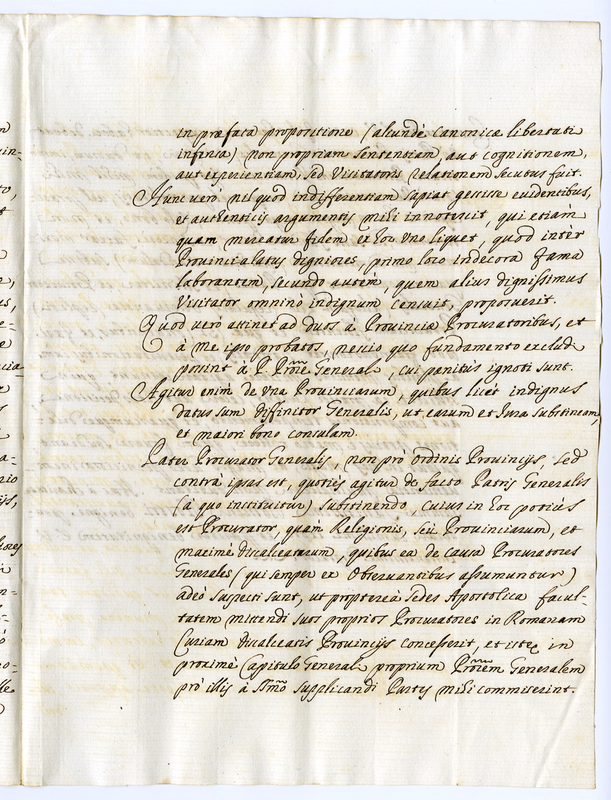 in præfata propositione (alcundè canonicæ libertati
infensa) non propriam sententiam, aut cognitionem,
aut experientiam, sed Visitatoris relationem secutus fuit.
Nunc verò nil quod indifferentiam sapiat gessisse evidentibus,
et authenticis argumentis mihi innotescit, qui etiam
quam mereatur fidem ex hoc uno liquet, quod intèr
Provincialatus digniores, primo loco indecora fama
laborantem, secundo autèm, quem alius dignissimus
Visitator omninò indignum censuit, proposuerit.
Quod verò attinet ad duos à Provinciæ Procuratoribus, et
à me ipso probatos, nescio quo fundamento excludi
possint à P. Prōre Generali, cui penitus ignoti sunt.
Agitur enim de una Provinciarum, quibus licèt indignus
datus sum Diffinitor Generalis, ut earum et Iura substineam,
et maiori bono consulam.
Pater Procurator Generalis, non prò ordinis Provincijs, sed
contrà ipsas est, quotiès agitur de facto Patris Generalis
(à quo instituitur) substinendo, cuius in hoc potiùs
est Procurator, quam Religionis, seù Provinciarum, et
maximè discalceatarum, quibus ea de causa Procuratores
Generales (qui semper ex Observantibus assumuntur)
adeò suspecti sunt, ut proptereà Sedes Apostolica facul-
tatem mittendi suos proprios Procuratores in Romanam
Curiam discalceatis Provincijs concesserit, et istæ in
proximè Capitulo Generali proprium Prōrem Generalem
prò illis à SSmo supplicandi Partes mihi commiserint.